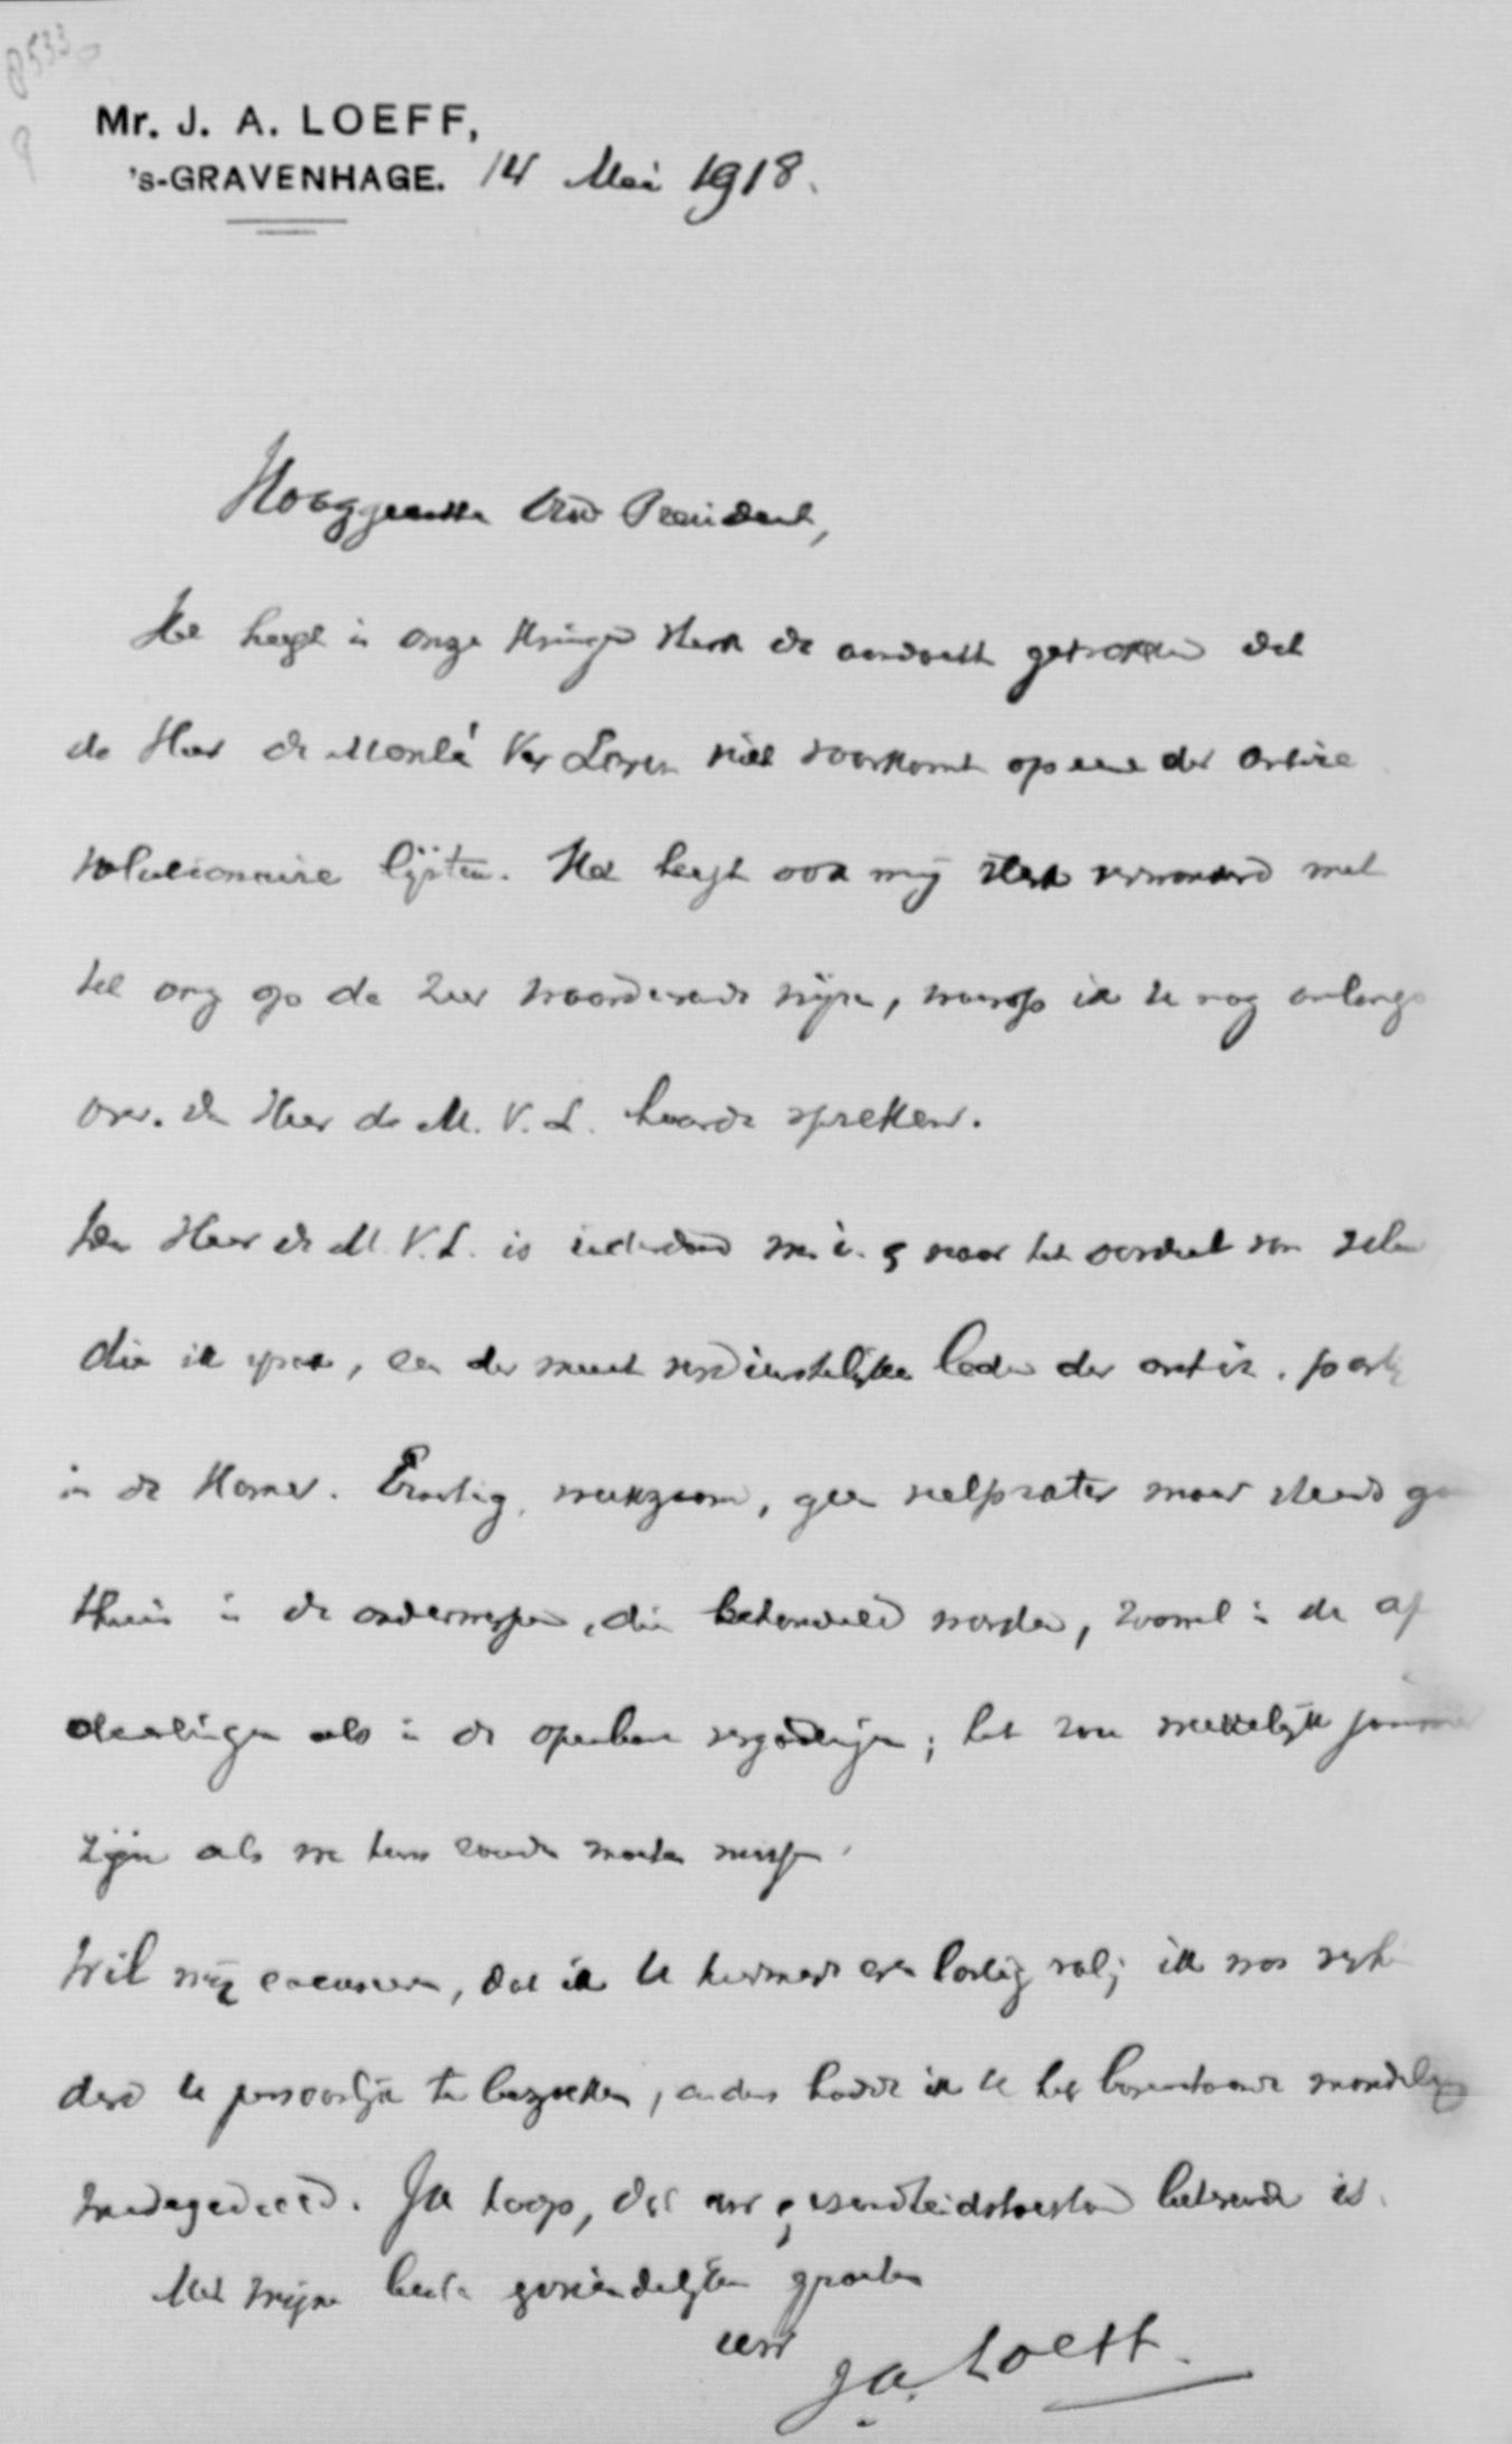 8533
Mr. J. A. LOEFF,
's-GRAVENHAGE. 14 Mei 1918.
Hooggeachte Oud President,
Het heeft in onze Kringen sterk de aandacht getrokken dat
de Heer de Monté Ver Loren niet voorkomt op eene der antire
volutionnaire lijsten. Het heeft ook mij sterk verwonderd met
het oog op de zeer waardeerende wijze, waarop ik U nog onlangs
over den Heer de M. V. L. hoorde spreken.
De Heer de M. V. L. is inderdaad m. i. & naar het oordeel van velen
die ik sprak, een der meest verdienstelijke leden der antir. partij
in de Kamer. Ernstig, werkzaam, geen veelprater maar steeds goed
thuis in de onderwerpen, die behandeld worden, zoowel in de af
deelingen als in de openbare vergaderingen; het zou werkelijk jammer
zijn als we hem zouden moeten missen.
Wil mij excuseeren, dat ik U hiermede even lastig val; ik was verhin
derd U persoonlijk te bezoeken, anders hadde ik U het bovenstaande mondeling
medegedeeld. Ik hoop, dat uw gezondheidstoestand beterende is.
Met mijne beste vriendelijke groeten
uw J.A. Loeff.